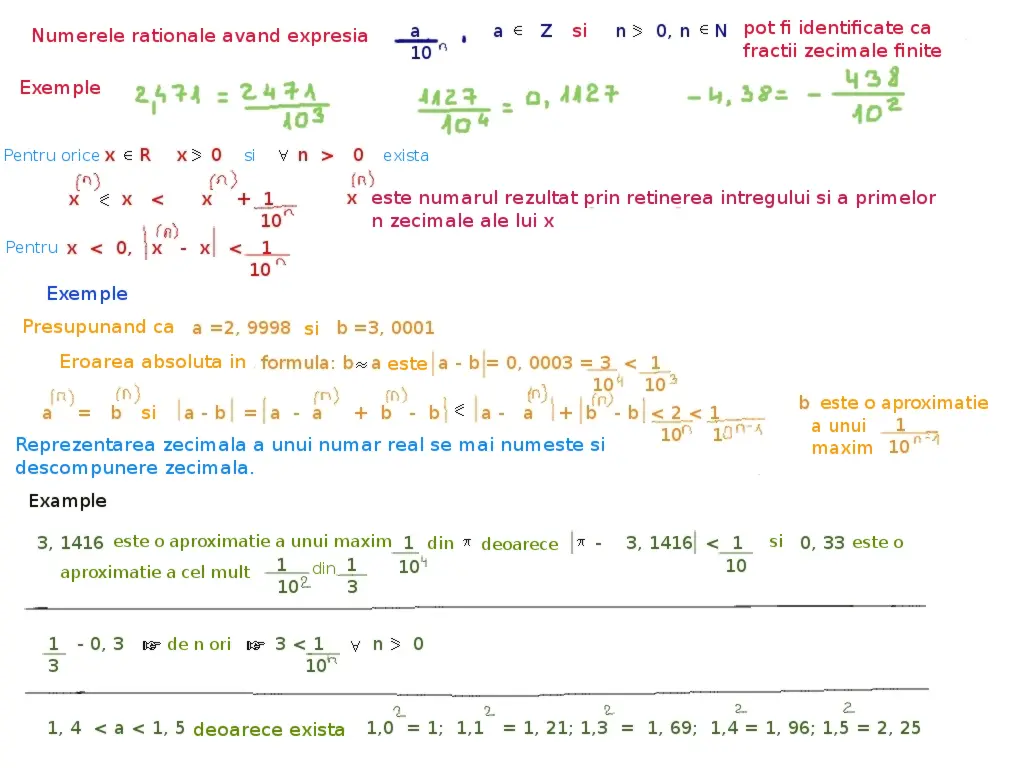 Numerele rationale avand expresia a/10ⁿ , a ∈ Z si n ⩾ 0, n ∈ N pot fi identificate ca
fractii zecimale finite
Exemple 2,471 = 2471/10³ 1127/10⁴ = 0,1127 -4,38= -438/10²
Pentru orice x ∈ R x ⩾ 0 si ∀ n > 0 exista
x⁽ⁿ⁾ ⩽ x < x⁽ⁿ⁾ + 1/10ⁿ x⁽ⁿ⁾ este numarul rezultat prin retinerea intregului si a primelor
n zecimale ale lui x
Pentru x < 0, |x⁽ⁿ⁾ - x| < 1/10ⁿ
Exemple
Presupunand ca a =2, 9998 si b =3, 0001
Eroarea absoluta in formula: b≈a este |a - b|= 0, 0003 = 3/10⁴ < 1/10³
a⁽ⁿ⁾ = b⁽ⁿ⁾ si |a - b| = |a - a⁽ⁿ⁾ + b⁽ⁿ⁾ - b| ⩽ |a - a⁽ⁿ⁾|+|b⁽ⁿ⁾ - b| < 2/10ⁿ < 1/10ⁿ⁻¹
b este o aproximatie
a unui
maxim 1/10ⁿ⁻¹
Reprezentarea zecimala a unui numar real se mai numeste si
descompunere zecimala.
Example
3, 1416 este o aproximatie a unui maxim 1/10⁴ din π deoarece |π - 3, 1416| < 1/10 si 0, 33 este o
aproximatie a cel mult 1/10² din 1/3
1/3 - 0, 3 ☞ de n ori ☞ 3 < 1/10ⁿ ∀ n ⩾ 0
1, 4 < a < 1, 5 deoarece exista 1,0² = 1; 1,1² = 1, 21; 1,3² = 1, 69; 1,4² = 1, 96; 1,5² = 2, 25